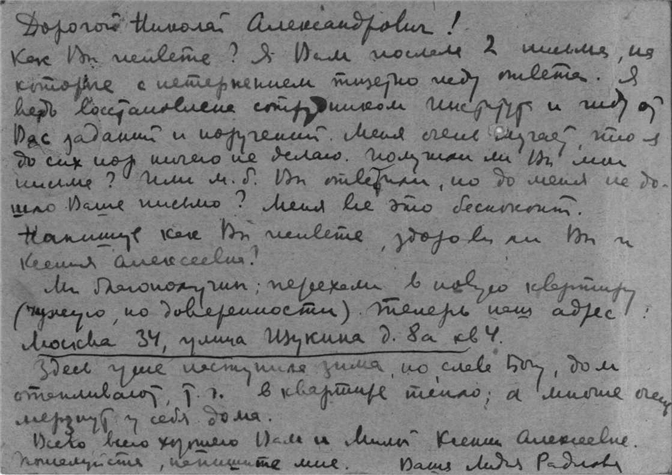 Дорогой Николай Александрович!
Как Вы живете? Я Вам послала 2 письма, на
которые с нетерпением тщетно жду ответа. Я
ведь восстановлена сотрудником Института и жду от
Вас заданий и поручений. Меня очень мучает, что я
до сих пор ничего не делаю. Получили ли Вы мои
письма? Или м.б. Вы ответили, но до меня не до-
шло Ваше письмо? Меня все это беспокоит.
Напишите как Вы живете, здоровы ли Вы и
Ксения Алексеевна?
Мы благополучны; переехали в новую квартиру
(чужую, по доверенности). Теперь наш адрес:
Москва 34, улица Щукина д. 8а кв 4.
Здесь уже наступила зима, но, слава Богу, дом
отапливают, т.ч. в квартире тепло; а многие очень
мерзнут у себя дома.
Всего всего хорошего Вам и милой Ксении Алексеевне.
Пожалуйста, напишите мне. Ваша Лидия Радлова